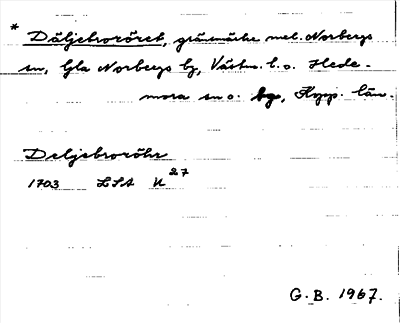 * Däljebroröret, gränsmärke mel. Norbergs
sn, Gla Norbergs by, Västm. l. o. Hede-
mora sn o. by, Kopp. län.
Deljebroröhr
1703 LSA U 27
G. B. 1967.